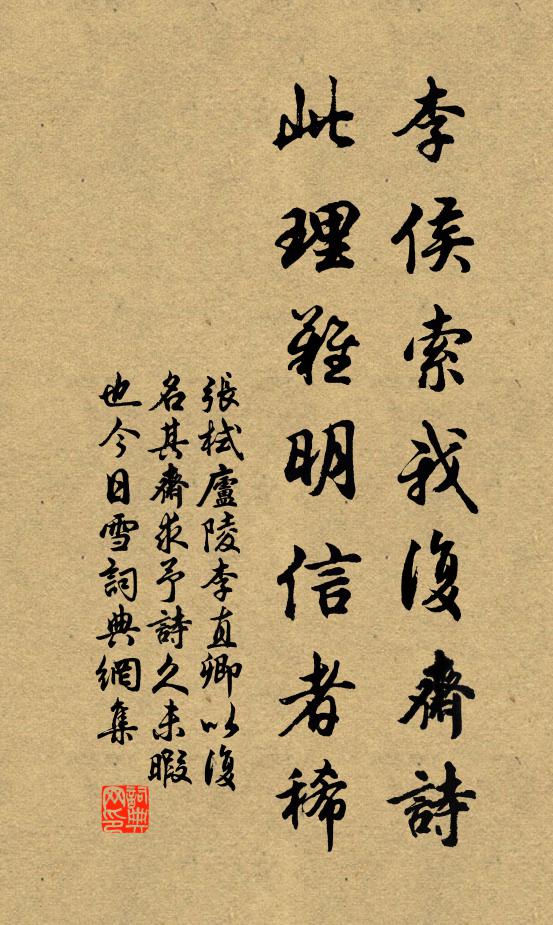 李侯索我復齋詩
此理難明信者稀
張栻廬陵李直卿以復
名其齋求予詩久未暇
也今日雪詞典網集
詞典网印